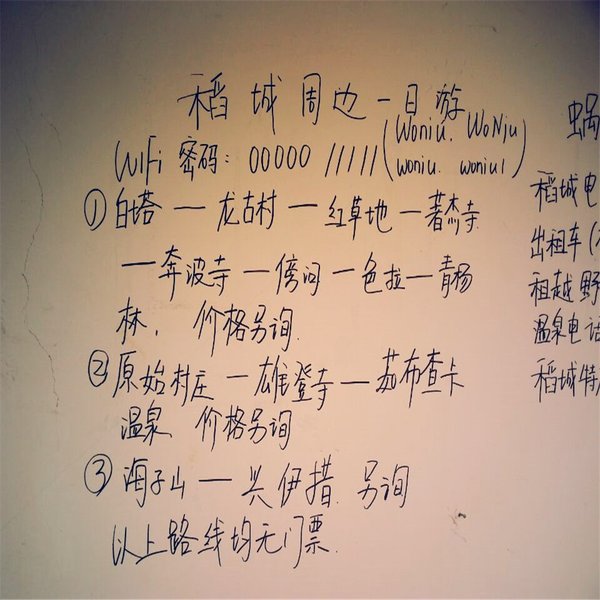 稻城周边一日游
WiFi 密码: 00000 11111 (Woniu. WoNiu
woniu. woniu1)
① 白塔 — 龙古村 — 红草地 — 著杰寺
— 奔波寺 — 傍河 — 色拉 — 青杨
林. 价格另询.
② 原始村庄 — 雄登寺 — 茹布查卡
温泉 价格另询
③ 海子山 — 兴伊措. 另询
以上路线均无门票.
蜗
稻城电
出租车(
租越野
温泉电话
稻城特